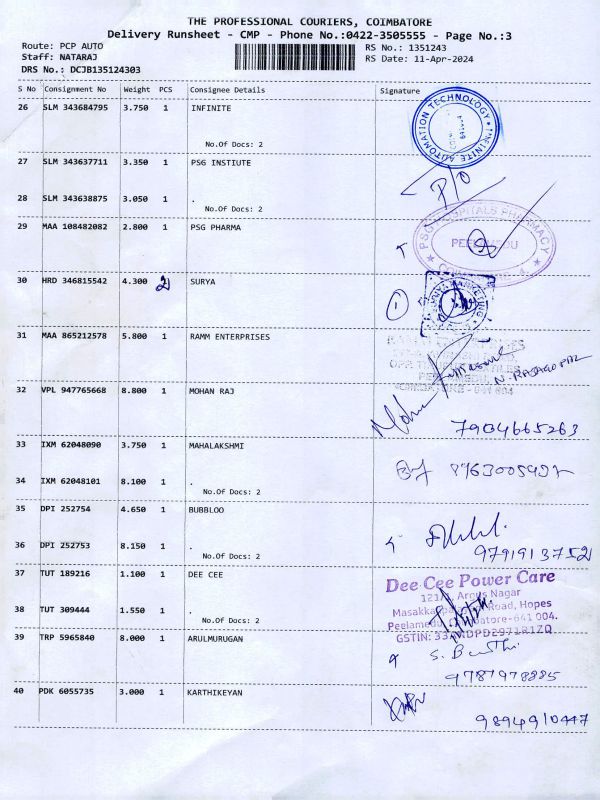 THE PROFESSIONAL COURIERS, COIMBATORE
Delivery Runsheet - CMP - Phone No.:0422-3505555 - Page No.:3
Route: PCP AUTO
RS No.: 1351243
Staff: NATARAJ
RS Date: 11-Apr-2024
DRS No.: DCJB135124303
S No Consignment No Weight PCS Consignee Details Signature
26 SLM 343684795 3.750 1 INFINITE
No.Of Docs: 2
INFINITE AUTOMATION TECHNOLOGY
27 SLM 343637711 3.350 1 PSG INSTIUTE
P/O
28 SLM 343638875 3.050 1 .
No.Of Docs: 2
29 MAA 108482082 2.800 1 PSG PHARMA
PSG HOSPITALS PHARMACY
PEELAMEDU
30 HRD 346815542 4.300 2 SURYA
1
31 MAA 865212578 5.800 1 RAMM ENTERPRISES
N. RAJAGOPAL
32 VPL 947765668 8.800 1 MOHAN RAJ
Mohan
7904665263
33 IXM 62048090 3.750 1 MAHALAKSHMI
34 IXM 62048101 8.100 1 .
No.Of Docs: 2
35 DPI 252754 4.650 1 BUBBLOO
36 DPI 252753 8.150 1 .
9791913752
No.Of Docs: 2
37 TUT 189216 1.100 1 DEE CEE
Dee Cee Power Care
Argus Nagar
Road, Hopes
38 TUT 309444 1.550 1 .
No.Of Docs: 2
39 TRP 5965840 8.000 1 ARULMURUGAN
9787978885
40 PDK 6055735 3.000 1 KARTHIKEYAN
9894910447